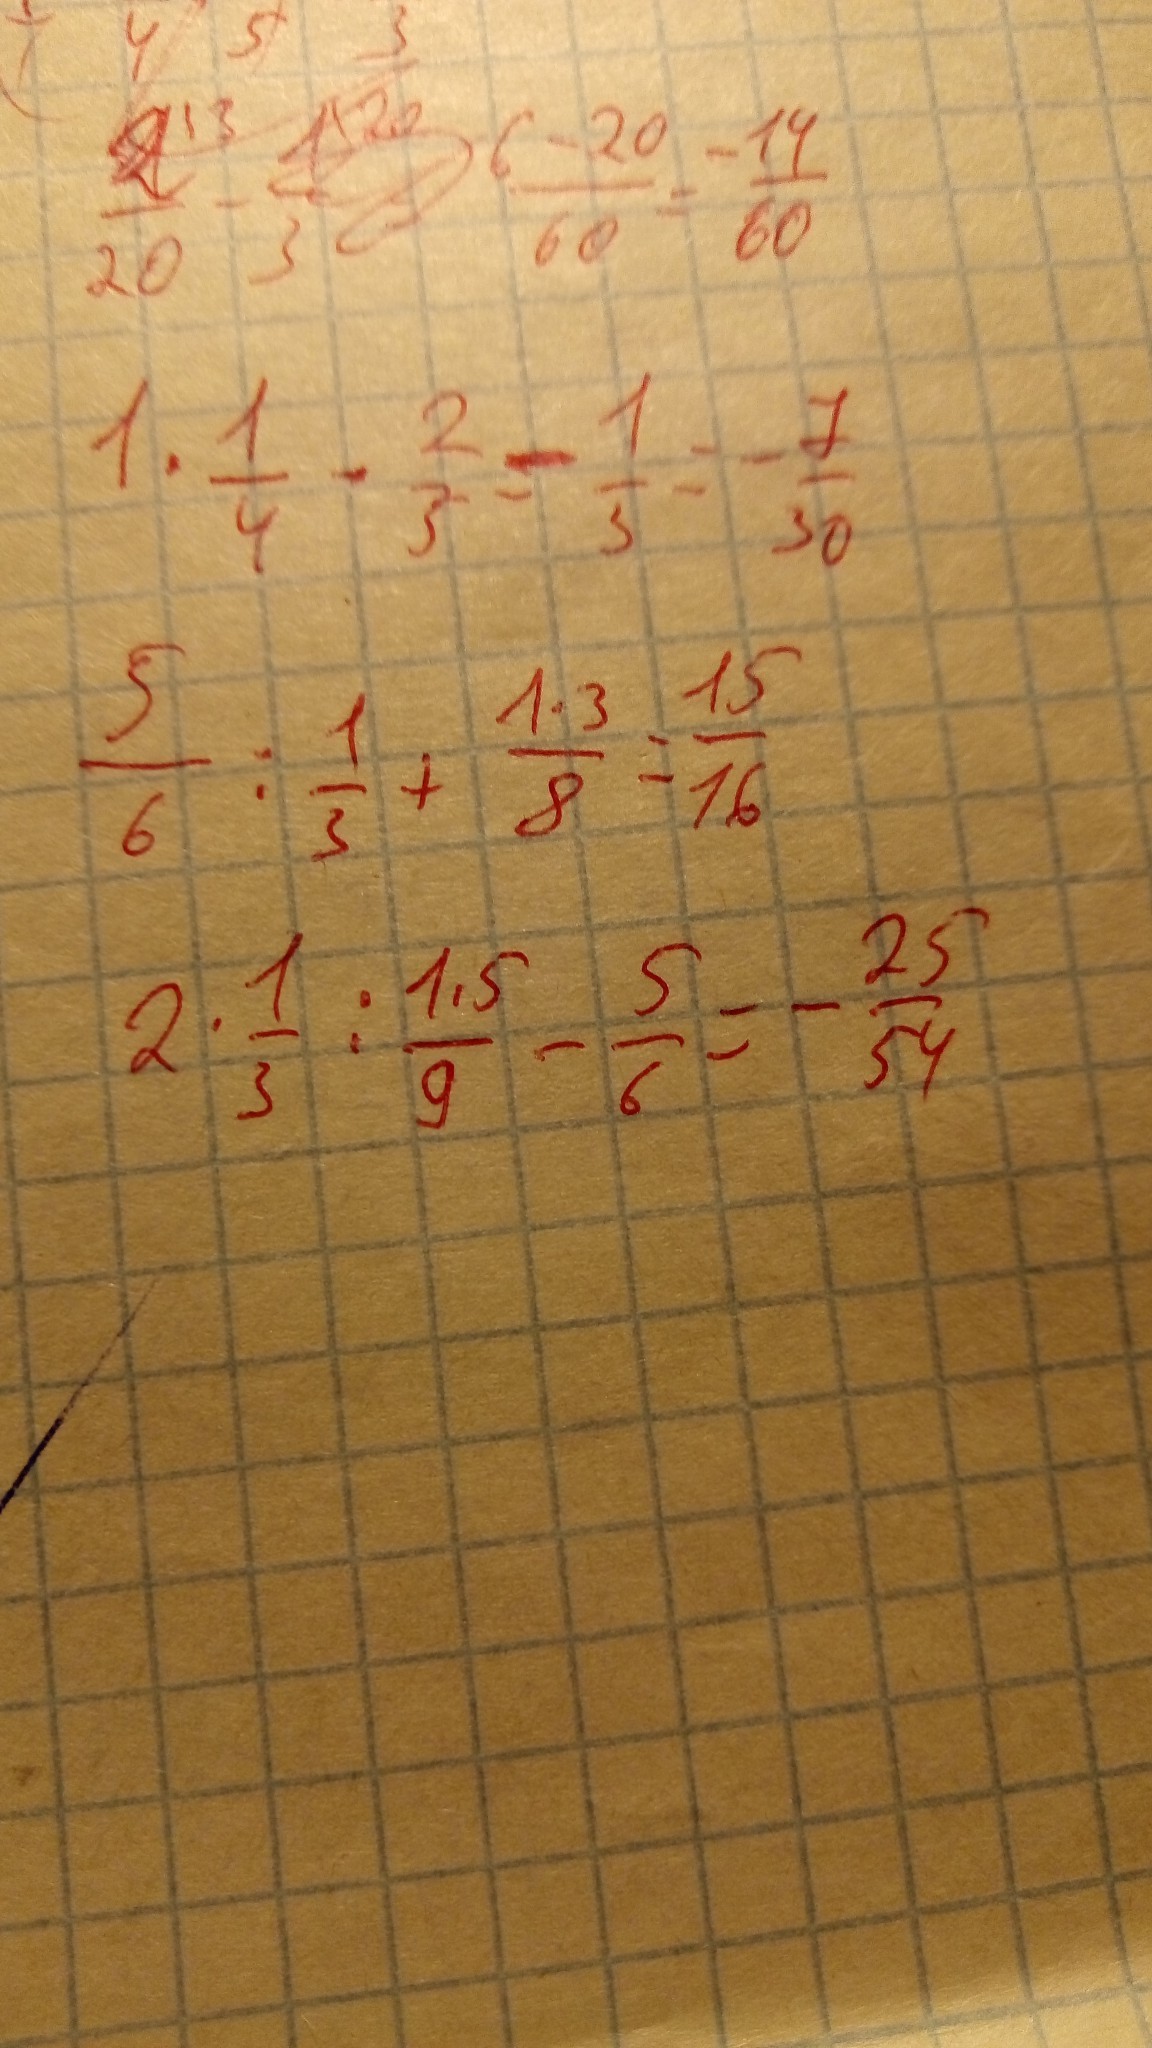 4 5 3
/20 - /3 6-20/60 = -14/60
1 · 1/4 - 2/3 = - 1/3 = - 7/30
5/6 : 1/3 + 1·3/8 = 15/16
2 · 1/3 : 1·5/9 - 5/6 = - 25/54